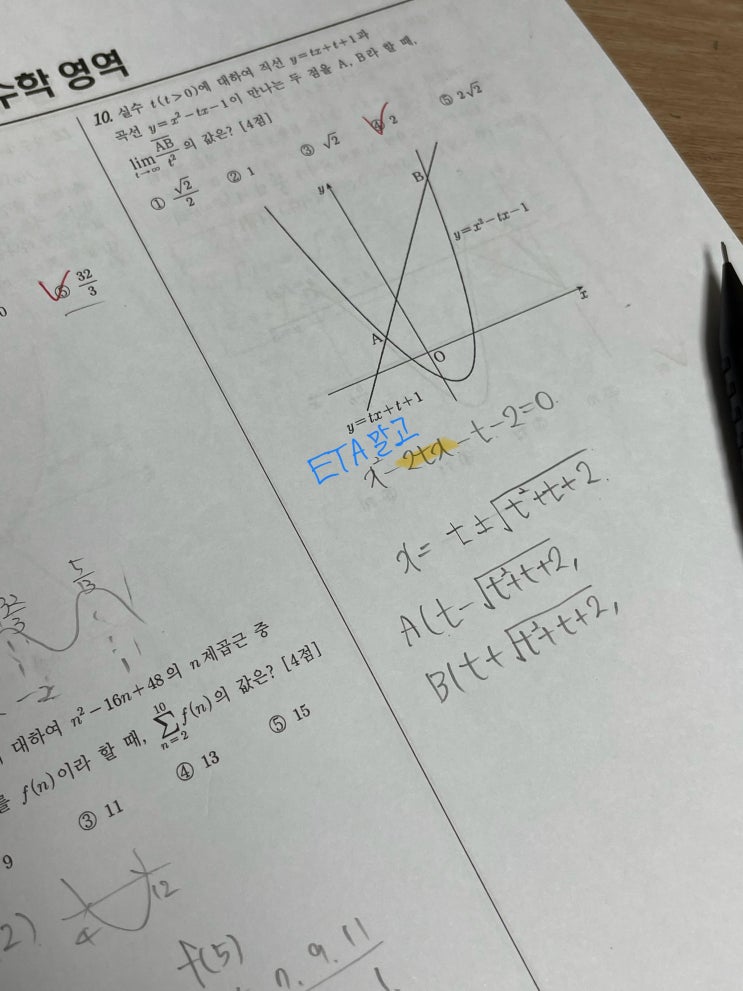 수학 영역
10. 실수 t(t>0)에 대하여 직선 y=tx+t+1과
곡선 y=x²-tx-1이 만나는 두 점을 A, B라 할 때,
lim t→∞ AB/t² 의 값은? [4점]
① √2/2 ② 1 ③ √2 ④ 2 ⑤ 2√2
y
B
y=x²-tx-1
x
A
O
y=tx+t+1
ETA말고
x²-2tx-t-2=0.
x= t±√t²+t+2.
A(t-√t²+t+2,
B(t+√t²+t+2,
⑤ 32/3
32/3
5/13
대하여 n²-16n+48의 n제곱근 중
f(n)이라 할 때, 10 ∑ n=2 f(n)의 값은? [4점]
9 ③ 11 ④ 13 ⑤ 15
4 12
f(5)